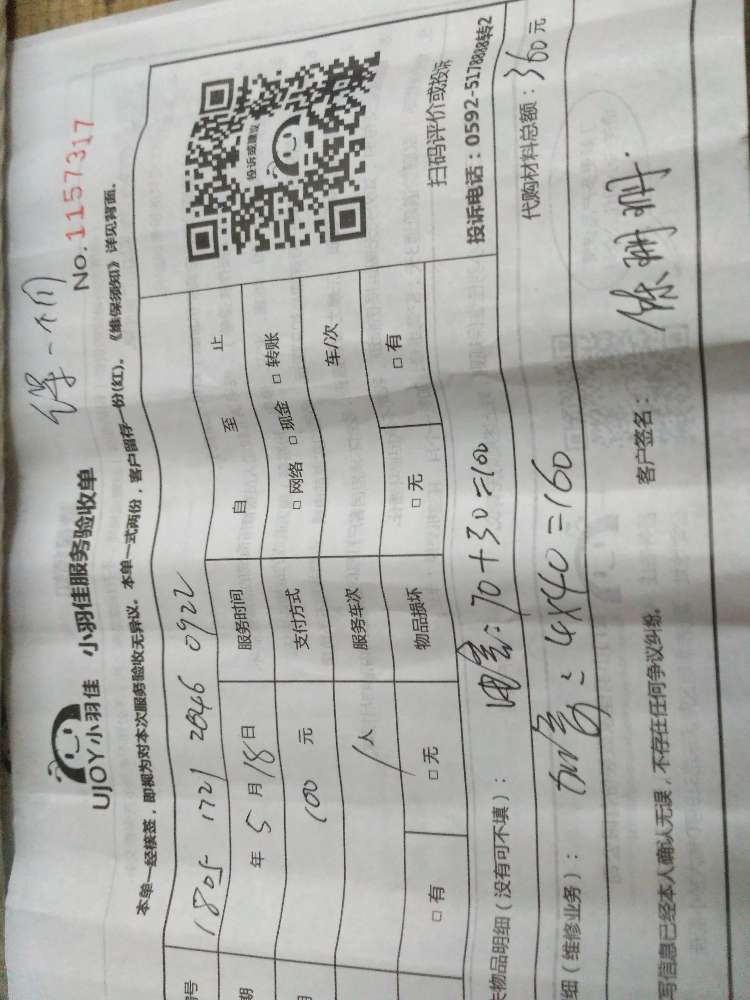 保一个月
No. 1157317
UJOY小羽佳 小羽佳服务验收单
本单一经接签,即视为对本次服务验收无异议。本单一式两份,客户留存一份(红)。《维保须知》详见背面。
号 1805 1721 2646 0922
期 年 5 月 18 日 服务时间 自 至 止
100 元 支付方式 □ 网络 □ 现金 □ 转账
1 人 服务车次 车/次
□ 有 □ 无 物品损坏 □ 无 □ 有
投诉或建议
扫码评价或投诉
投诉电话:0592-5178888转2
物品明细(没有可不填): 70+30=100
代购材料总额:360 元
细(维修业务): : 4×40=160
写信息已经本人确认无误,不存在任何争议纠纷。 客户签名: